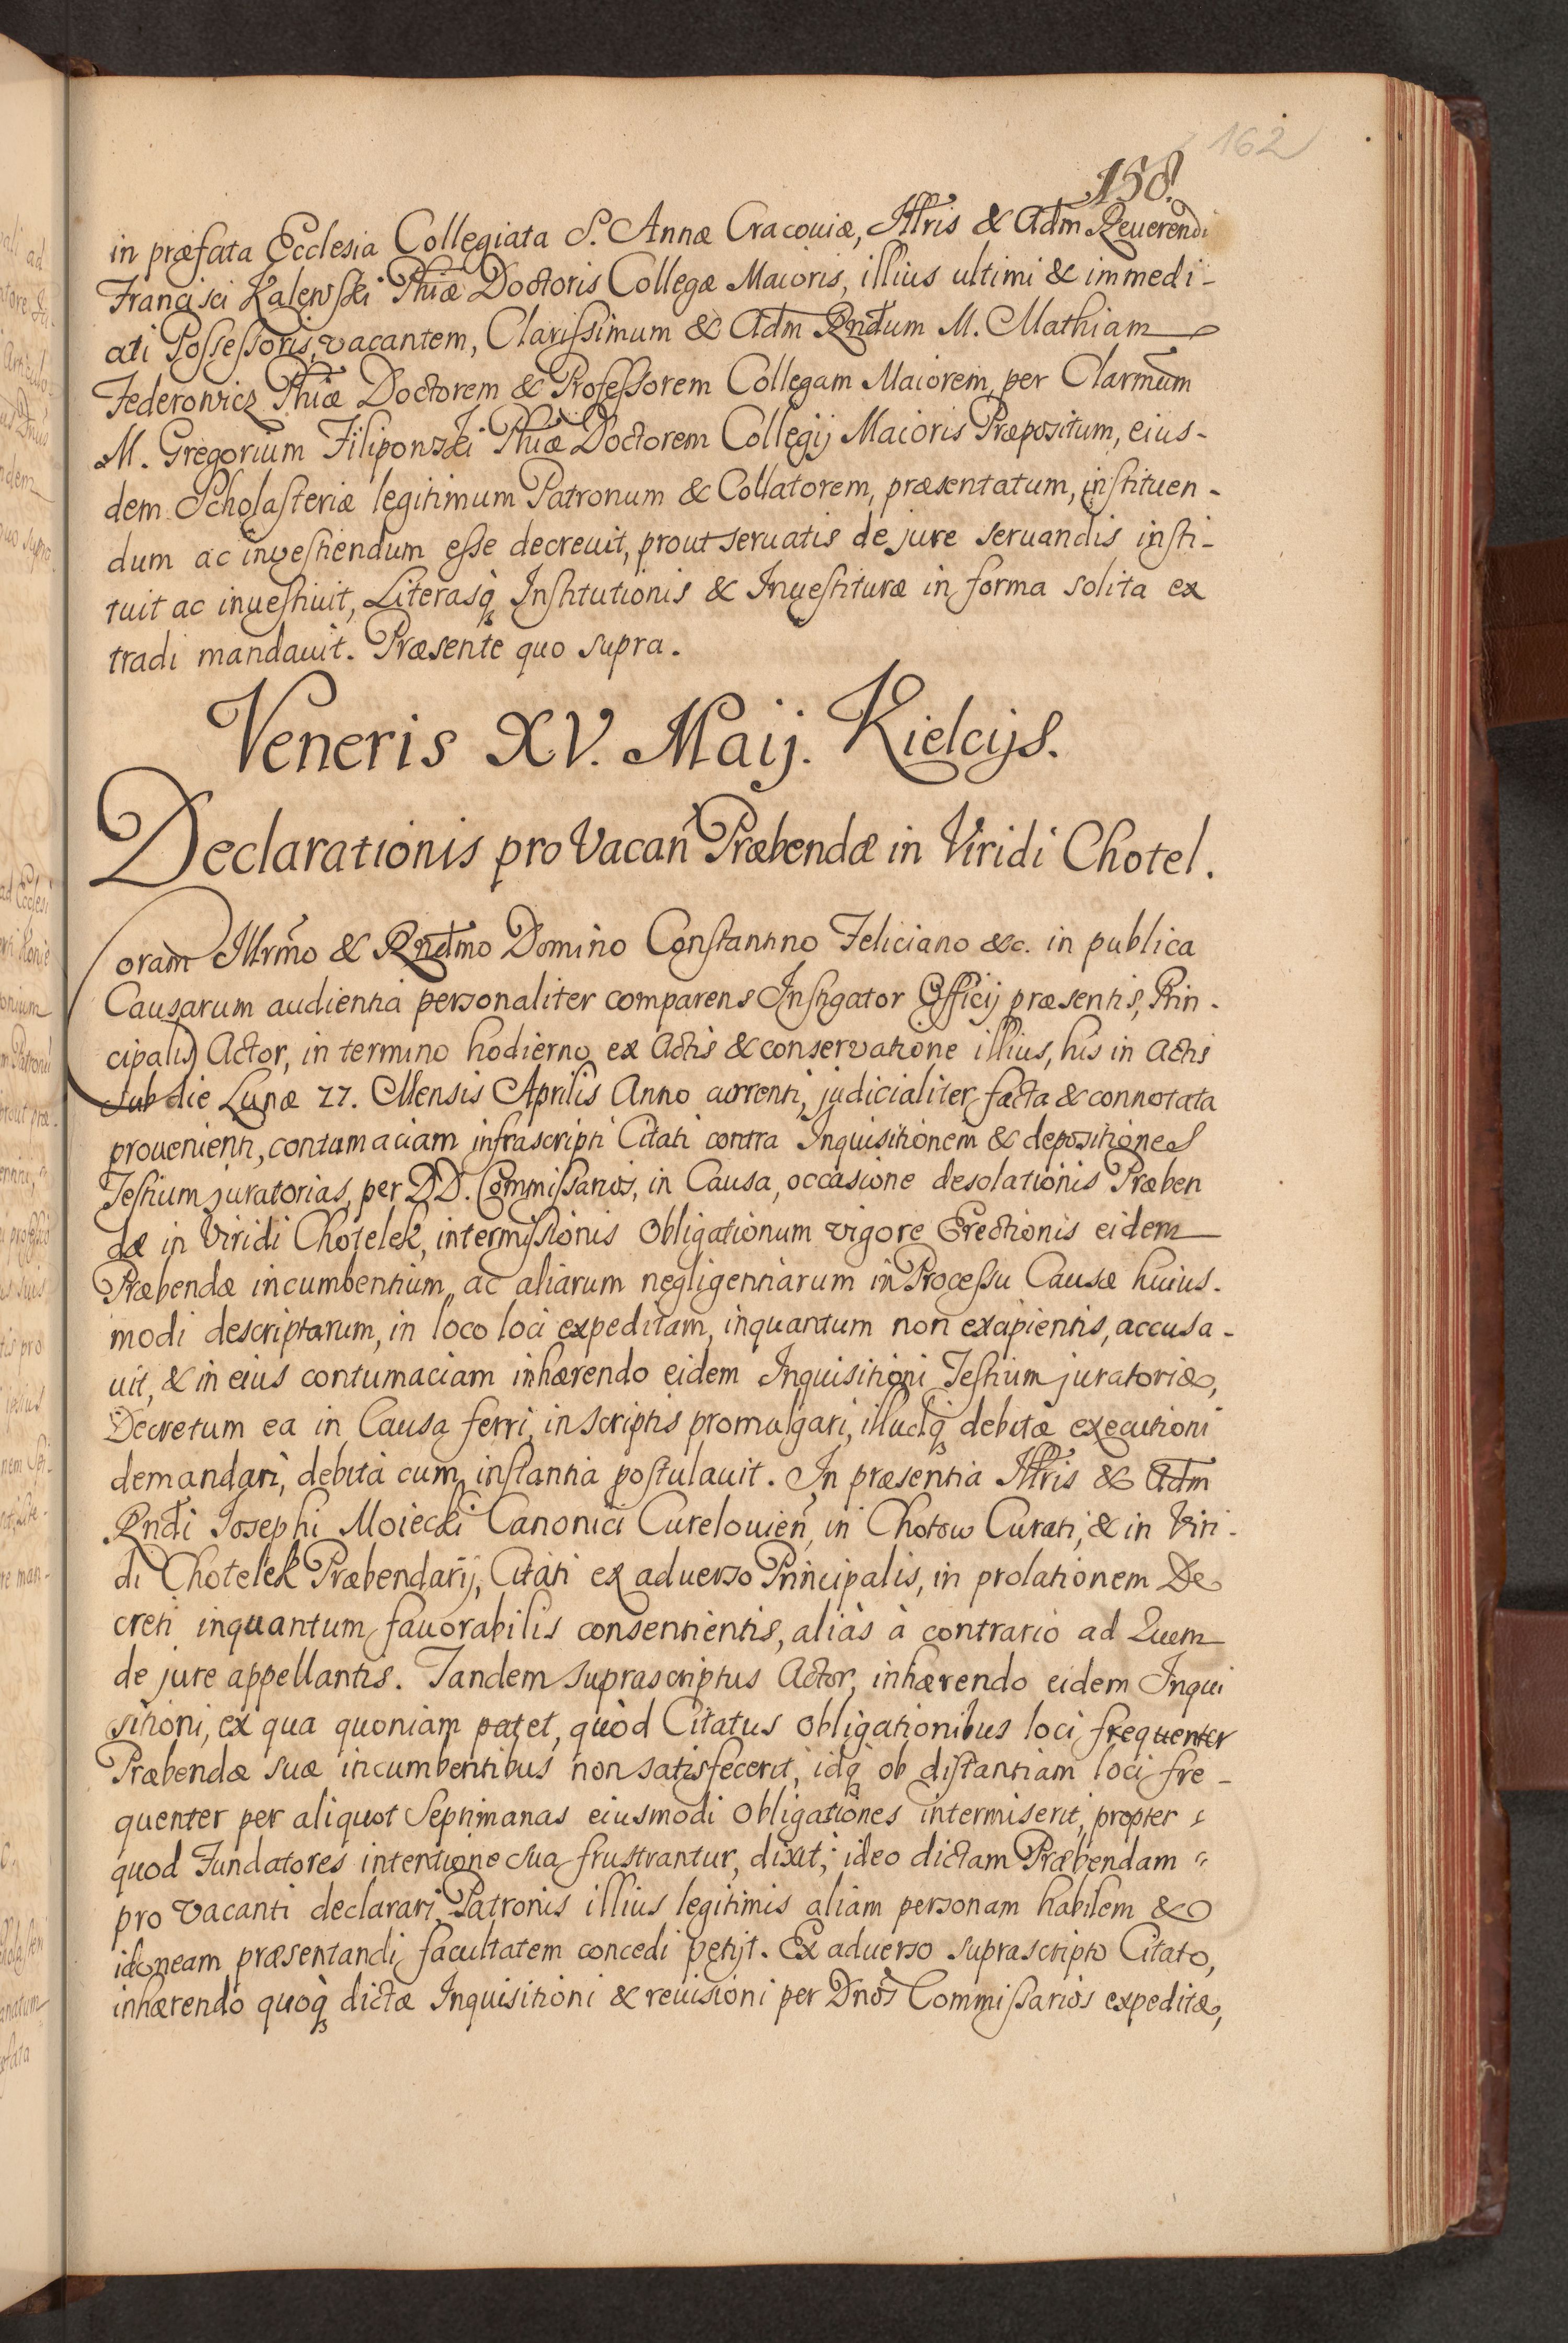 162
158.
in præfata Ecclesia Collegiata S. Annæ Cracouiæ, Illris & Adm Reuerendi
Francisci Kalewski Phiæ Doctoris Collegæ Maioris, illius ultimi & immedi-
ati Possessoris, vacantem, Clarissimum & Adm Rndum M. Mathiam
Federowicz Phiæ Doctorem & Professorem Collegam Maiorem, per Clarmum
M. Gregorium Filipowski Phiæ Doctorem Collegij Maioris Præpositum, eius-
dem Scholasteriæ legitimum Patronum & Collatorem, præsentatum, instituen-
dum ac investiendum esse decreuit, prout seruatis de jure seruandis insti-
tuit ac inuestiuit, Literasq Institutionis & Inuestituræ in forma solita ex
tradi mandauit. Præsente quo supra.
Veneris XV. Maij. Kielcijs.
Declarationis pro Vacan Præbendæ in Viridi Chotel.
Coram Illrmo & Rndmo Domino Constantino Feliciano &c. in publica
Causarum audientia personaliter comparens Instigator Officij præsentis, Prin-
cipalis Actor, in termino hodierno ex Actis & conservatione illius, his in Actis
sub die Lunæ 27. Mensis Aprilis Anno currenti, judicialiter facta & connotata
prouenienti, contumaciam infrascripti Citati contra Inquisitionem & depositiones
Testium juratorias, per DD. Commissarios, in Causa, occasione desolationis Præben
dæ in Viridi Chotelek, intermissionis Obligationum vigore Erectionis eidem
Præbendæ incumbentium, ac aliarum negligentiarum in Processu Causæ huius-
modi descriptarum, in loco loci expeditam, inquantum non excipientis, accusa-
uit, & in eius contumaciam inhærendo eidem Inquisitioni Testium juratoriæ,
Decretum ea in Causa ferri, in scriptis promulgari, illudq debitæ executioni
demandari, debità cum instantia postulauit. In præsentia Illris & Adm
Rndi Josephi Moiecki Canonici Curelouien, in Chotow Curati, & in Viri-
di Chotelek Præbendarij, Citati ex aduerso Principalis, in prolationem De
creti inquantum fauorabilis consentientis, aliàs à contrario ad Quem
de jure appellantis. Tandem suprascriptus Actor, inhærendo eidem Inqui
sitioni, ex qua quoniam patet, quòd Citatus Obligationibus loci frequenter
Præbendæ suæ incumbentibus non satisfecerit, idq ob distantiam loci fre-
quenter per aliquot Septimanas eiusmodi Obligationes intermiserit, propter
quod Fundatores intentione sua frustrantur, dixit; ideo dictam Præbendam
pro Vacanti declarari, Patronis illius legitimis aliam personam habilem &
idoneam præsentandi facultatem concedi petijt. Ex aduerso suprascripto Citato,
inhærendo quoq dictæ Inquisitioni & reuisioni per Dnos Commissarios expeditæ,